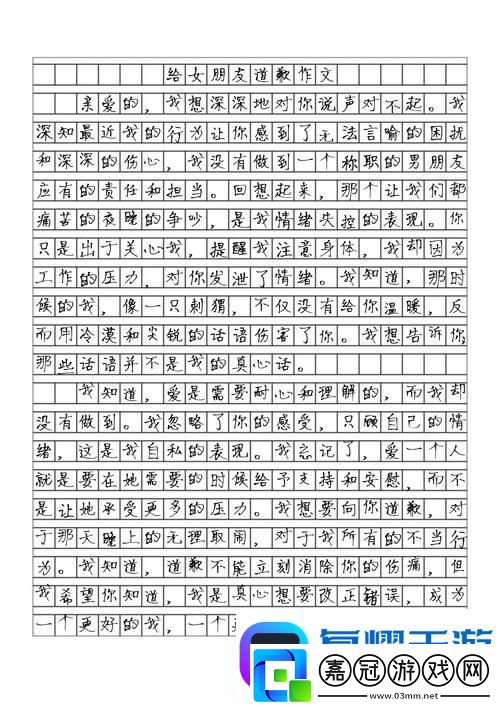 给女朋友道歉作文
亲爱的，我想深深地对你说声对不起。我
深知最近我的行为让你感到了无法言喻的困扰
和深深的伤心，我没有做到一个称职的男朋友
应有的责任和担当。回想起来，那个让我们都
痛苦的夜晚的争吵，是我情绪失控的表现。你
只是出于关心我，提醒我注意身体，我却因为
工作的压力，对你发泄了情绪。我知道，那时
候的我，像一只刺猬，不仅没有给你温暖，反
而用冷漠和尖锐的话语伤害了你。我想告诉你，
那些话语并不是我的真心话。
我知道，爱是需要耐心和理解的，而我却
没有做到。我忽略了你的感受，只顾自己的情
绪，这是我自私的表现。我忘记了，爱一个人
就是要在她需要的时候给予支持和安慰，而不
是让她承受更多的压力。我想要向你道歉，对
于那天晚上的无理取闹，对于我所有的不当行
为。我知道，道歉不能立刻消除你的伤痛，但
我希望你知道，我是真心想要改正错误，成为
一个更好的我，一个
嘉冠游戏网
www.03mm.net